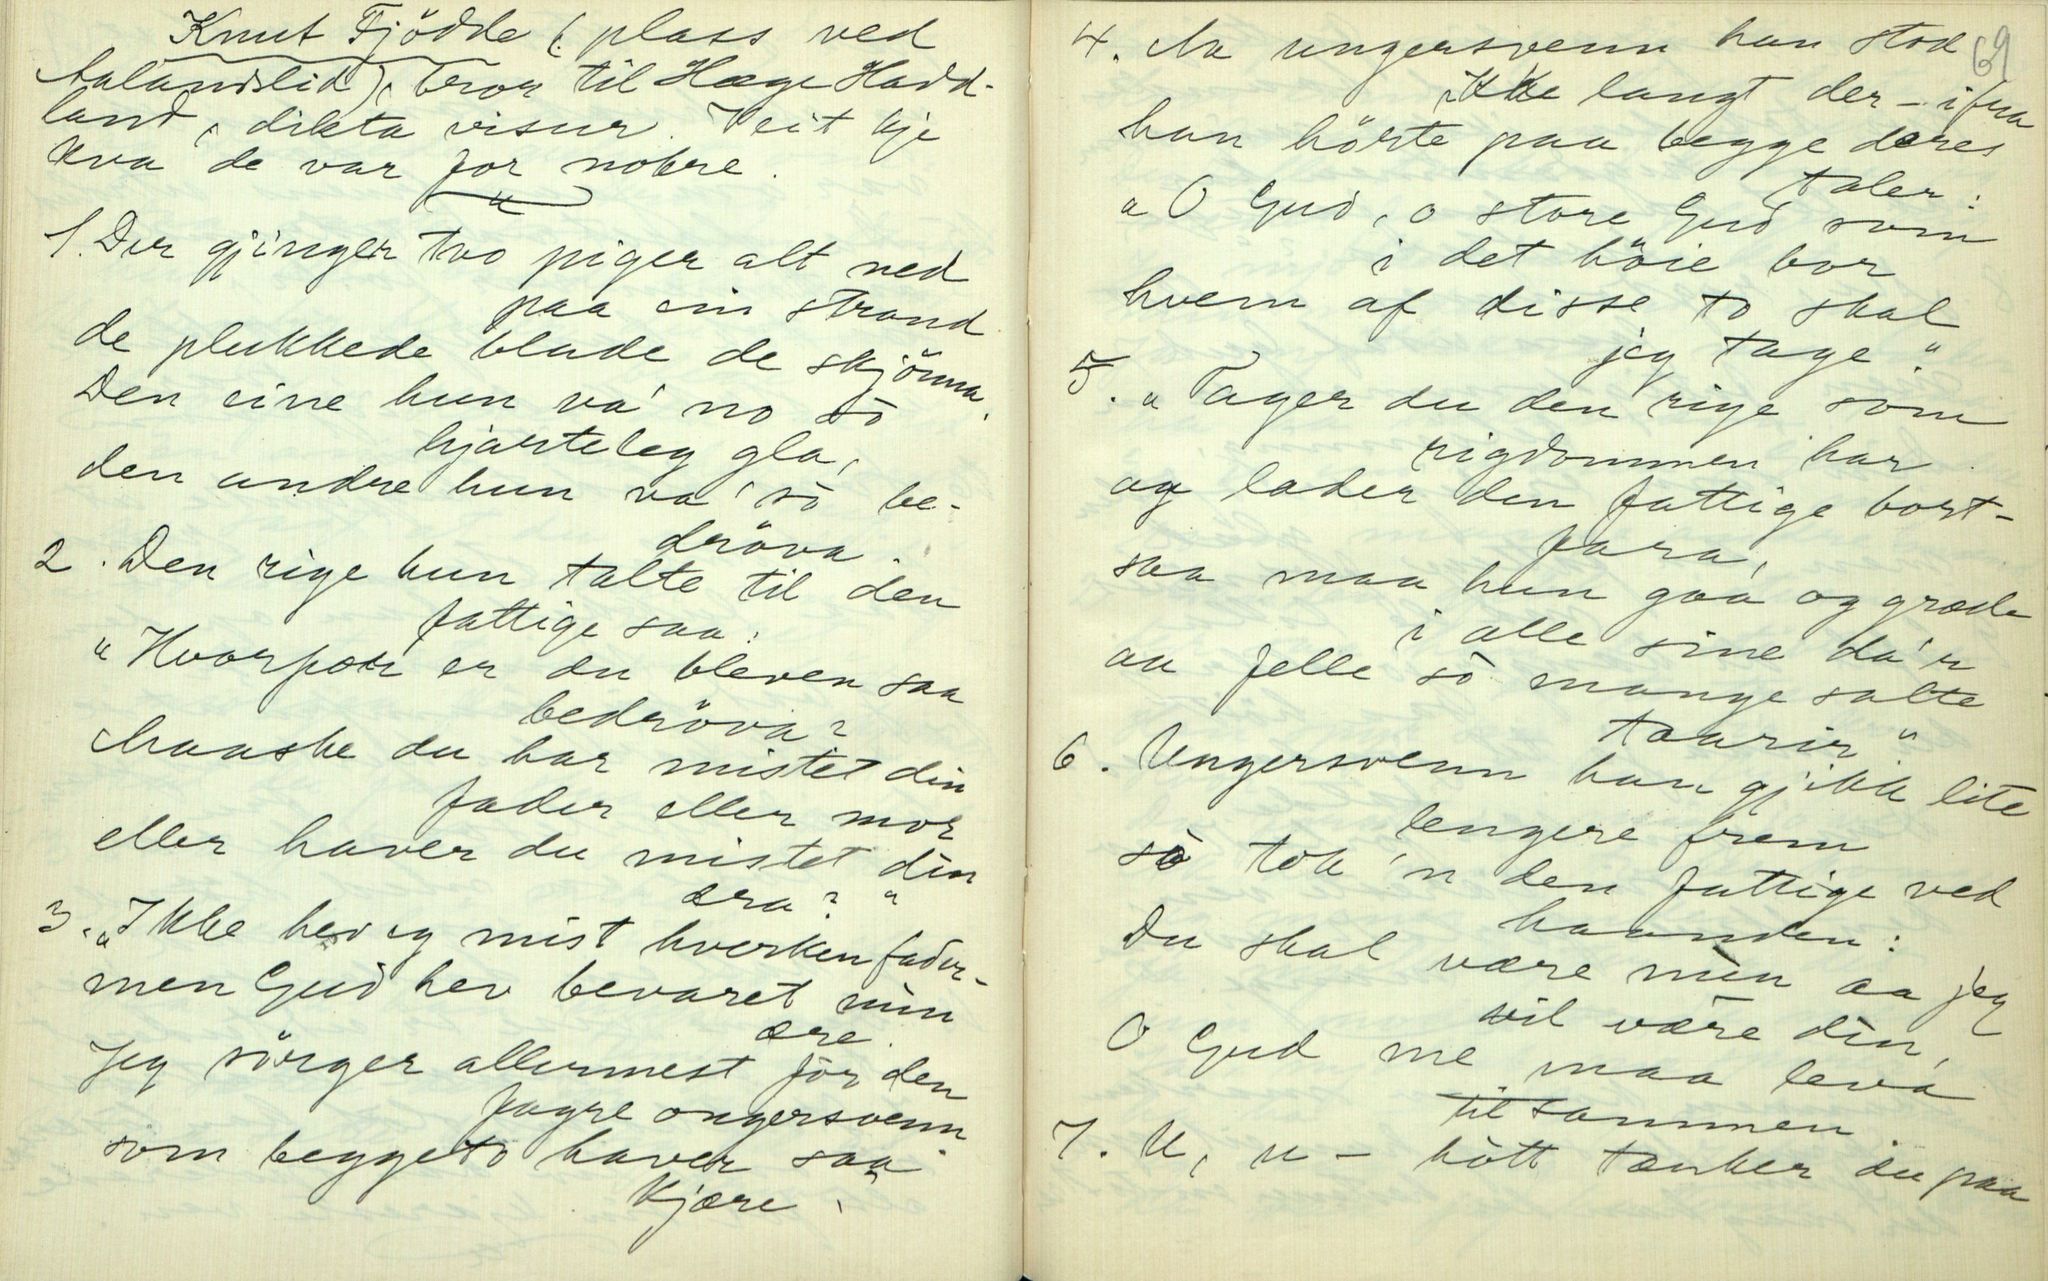 Knut Fjödde (: plass ved
Aalandslid), bror til Hæge Hadd-
land, dikta visur. Veit kje
kva de var for nokre.
1. Der gjinger tvo piger alt ned
paa ein strand
de plukkede blade de skjönna.
Den eine hun va' no sò
hjarteleg gla,
den andre hun va' sò be-
dröva.
2. Den rige hun talte til den
fattige saa:
"Hvorfor er du bleven saa
bedröva?
Maaske du har mistet din
fader eller mor
eller haver du mistet din
æra?"
3. "Ikke hev eg mist hverken fader-
men Gud hev bevaret min
ære.
Jeg sörger allermest för den
fagre ongersvenn
som beggeto haver saa
kjære."
69
4. Aa ungersvenn han stod
ikke langt der-ifra
han hörte paa begge deres
taler:
"O Gud, o store Gud som
i det höie bor
hvem af disse to skal
jeg tage"
5. "Tager du den rige som
rigdommen har
og lader den fattige bort-
fara,
saa maa hun gaa og græde
i alle sine da'r
aa felle sò mange salte
taarir"
6. Ungersvenn han gjikk lite
lengere frem
sò tok 'n den fattige ved
haanden:
Du skal være min aa jeg
vil være din,
O Gud me maa leva
tilsammen
7. U, u - hòtt tænker du paa